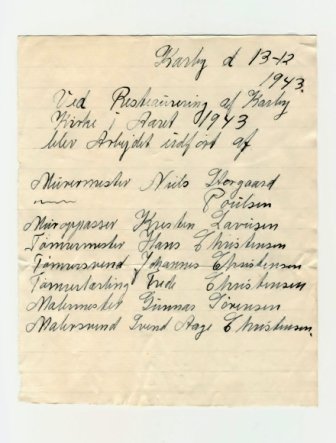 Karby d 13-12
1943.
Ved Restaurering af Karby
Kirke i Aaret 1943
blev Arbejdet udført af
Murermester Niels Storgaard
Poulsen
Muroppasser Kresten Lavrsen
Tømrermester Hans Christensen
Tømrersvend Johannes Christensen
Tømrerlærling Frede Christensen
Malermester Gunnar Sørensen
Malersvend Svend Aage Christensen.